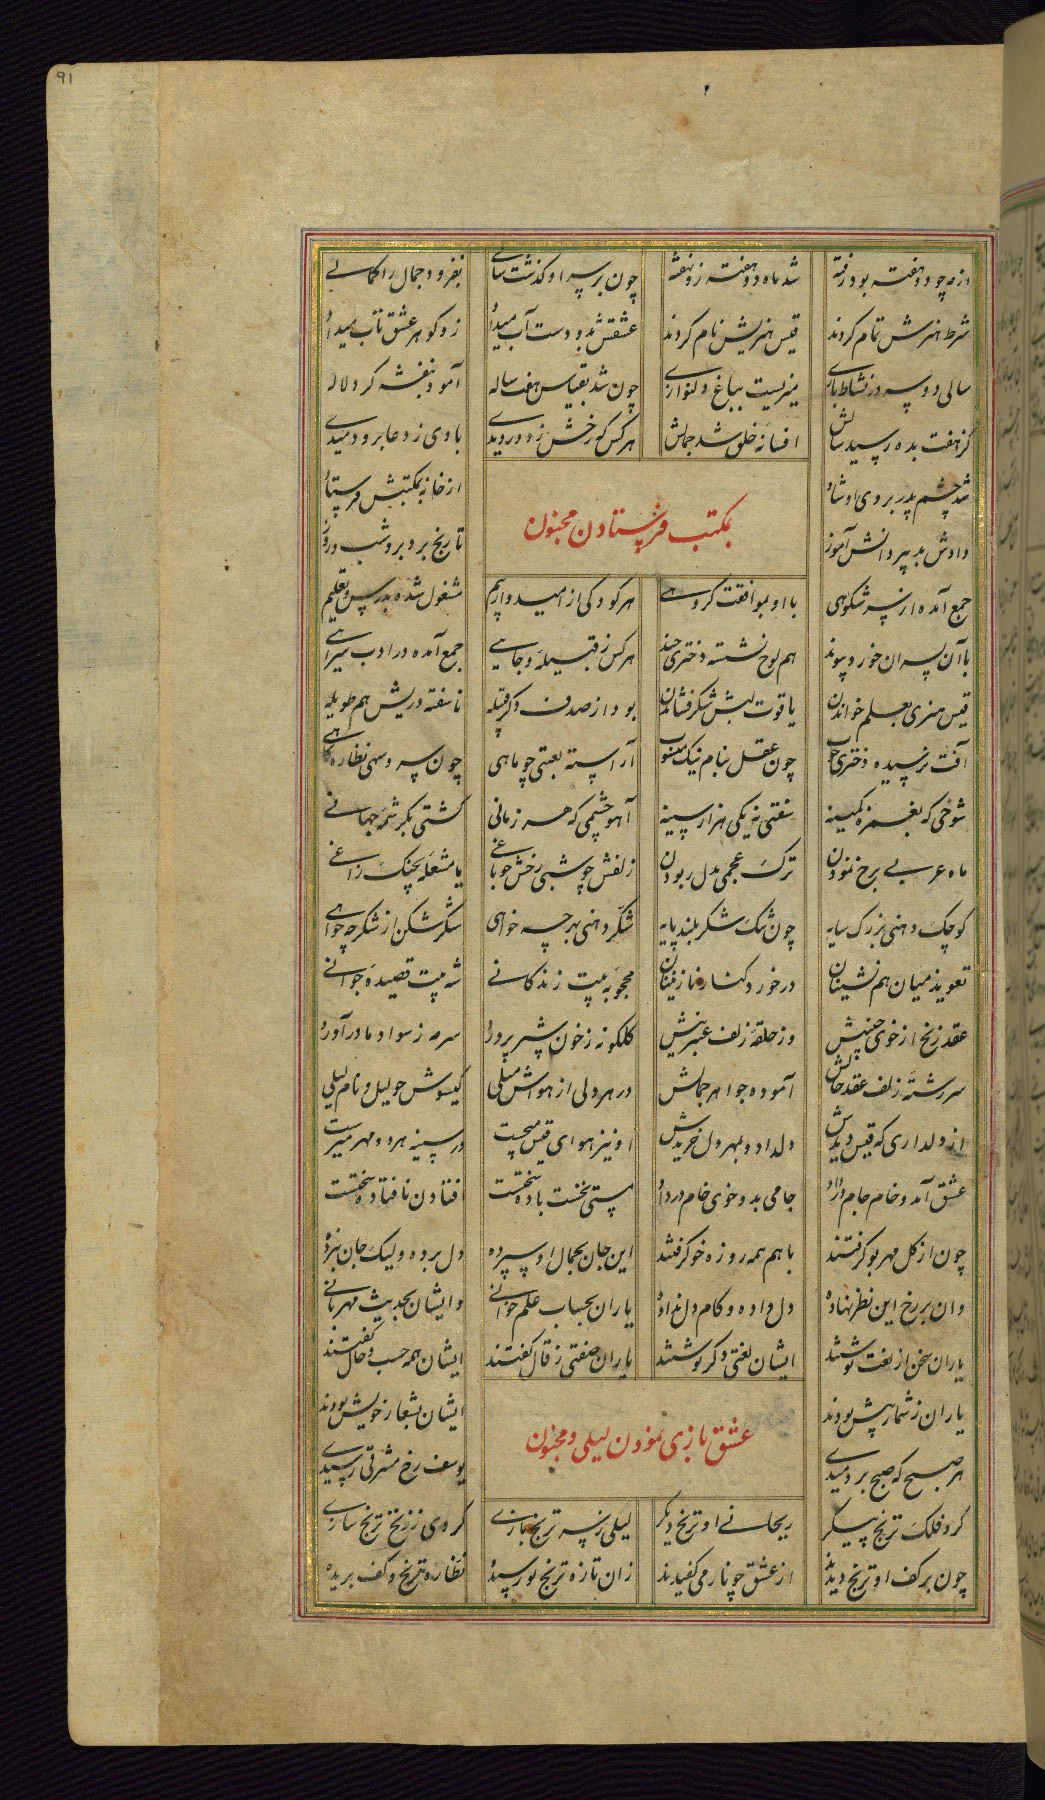 ٩١
وز مه چو دو هفته بود رفته شد ماه دو هفته زو نهفته چون بر سر او گذشت سالی بفزود جمال را کمالی
شرط هنرش تمام کردند قیس هنریش نام کردند عشقش بدو دست آب میداد زو گوهر عشق تاب میداد
سالی دو سه در نشاط بازی میزیست بباغ دلنوازی چون شد بقیاس هفت ساله آمود بنفشه گرد لاله
کز هفت بده رسید سالش افسانه خلق شد جمالش هر کس که رخش ز دور دیدی بادی ز دعا برو دمیدی
شد چشم پدر بروی او شاد از خانه بمکتبش فرستاد
بمکتب فرستادن مجنون
دادش بدبیر دانش آموز تا رنج برد برو شب و روز
جمع آمده از سر شکوهی با او بموافقت گروهی هر کودکی از امید و از بیم مشغول شده بدرس و تعلیم
با آن پسران خورد پیوند هم لوح نشسته دختری چند هر کس ز قبیله و جایی جمع آمده در ادب سرایی
قیس هنری بعلم خواندن یاقوت لبش شکر فشاندن بود از صدف دگر قبیله ناسفته دریش هم طویله
آفت نرسیده دختری خوب چون عقل بنام نیک منسوب آراسته لعبتی چو ماهی چون سرو سهی نظاره گاهی
شوخی که بغمزه کمینه سفتی نه یکی هزار سینه آهو چشمی که هر زمانی کشتی بکرشمه جهانی
ماه عربی برخ نمودن ترک عجمی بدل ربودن زلفش چو شبی رخش چو باغی یا مشعله بچنگ زاغی
کوچک دهنی بزرگ سایه چون تنگ شکر بلند پایه شکر دهنی بهر چه خواهی شکر شکن از شکر چه خواهی
تعویذ میان هم نشینان در خورد کنار نازنینان محجوبه بیت زندگانی شه بیت قصیده جوانی
عقد زنخ از خوی جبینش وز حلقه زلف عنبرینش گلگونه ز خون شیر پرورد سرمه ز سواد مادر آورد
سررشته زلف عقد خالش آموده جواهر جمالش در هر دلی از هواش میلی گیسوش چو لیل و نام لیلی
از دلداری که قیس دیدش دل داد و بمهر دل خریدش او نیز هوای قیس میجست در سینه هر دو مهر میرست
عشق آمد و خام جام در داد جامی بدو خوی خام در داد مستی بنخست باده سختست افتادن نافتاده سختست
چون از گل مهر بو گرفتند با هم همه روزه خو گرفتند این جان بجمال او سپرده دل برده ولیک جان نبرده
وان بر رخ این نظر نهاده دل داده و کام دل نداده یاران بحساب علم خوانی و ایشان بحدیث مهربانی
یاران سخن از لغت نوشتند ایشان لغتی دگر نوشتند یاران صفتی ز قال گفتند ایشان همه حسب حال گفتند
یاران ز شمار پیش بودند ایشان بشمار خویش بودند
عشق بازی نمودن لیلی و مجنون
هر صبح که صبح بر دمیدی یوسف رخ مشرقی رسیدی
کرد فلک ترنج پیکر ریحانی او ترنج دیگر لیلی ز سر ترنج بازی کردی ز زنخ ترنج سازی
چون بر کف او ترنج دیدند از عشق چو نار می کفیدند زان تازه ترنج نو رسیده نظاره ترنج و کف بریده